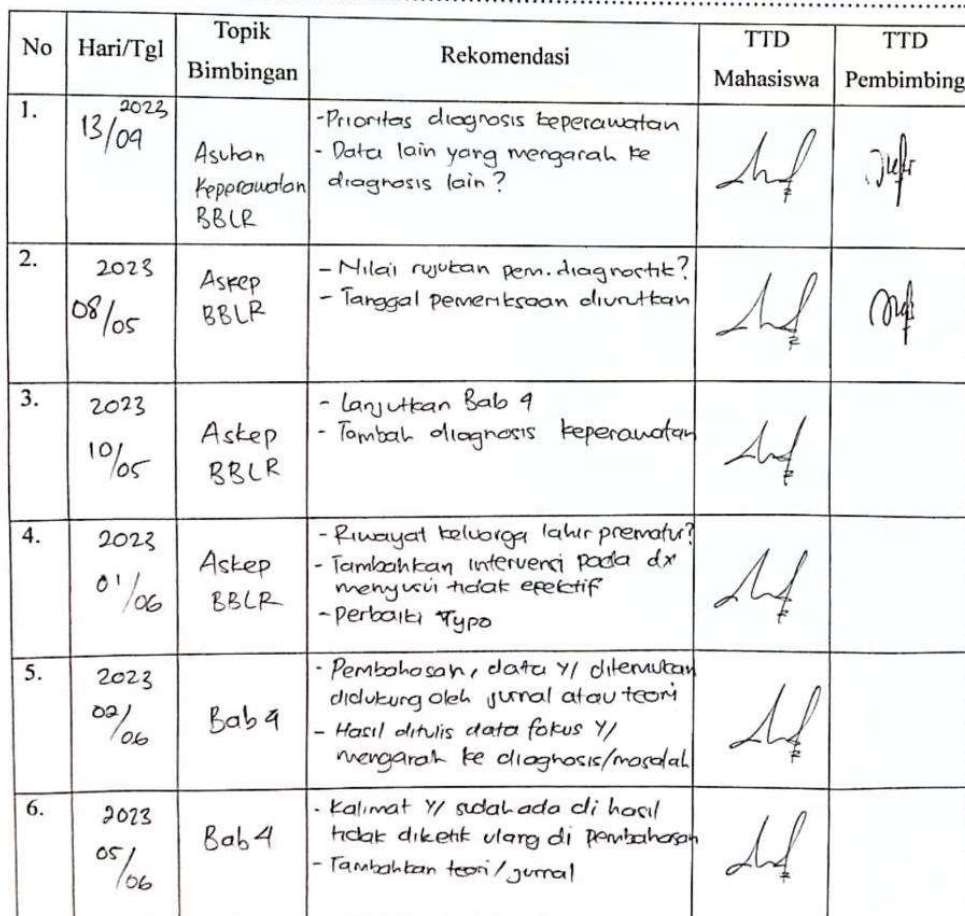 No Hari/Tgl Topik Bimbingan Rekomendasi TTD Mahasiswa TTD Pembimbing
1. 2023 13/09 Asuhan Keperawatan BBLR
-Prioritas diagnosis keperawatan
- Data lain yang mengarah ke
diagnosis lain?
2. 2023 08/05 Askep BBLR
- Nilai rujukan pem. diagnostik?
- Tanggal pemeriksaan diurutkan
3. 2023 10/05 Askep BBLR
- Lanjutkan Bab 4
- Tambah diagnosis keperawatan
4. 2023 01/06 Askep BBLR
- Riwayat keluarga lahir prematur?
- Tambahkan intervensi pada dx
menyusui tidak efektif
- Perbaiki Typo
5. 2023 02/06 Bab 4
- Pembahasan, data Y/ ditemukan
didukung oleh jurnal atau teori
- Hasil ditulis data fokus Y/
mengarah ke diagnosis/masalah
6. 2023 05/06 Bab 4
- Kalimat Y/ sudah ada di hasil
tidak diketik ulang di pembahasan
- Tambahkan teori/jurnal